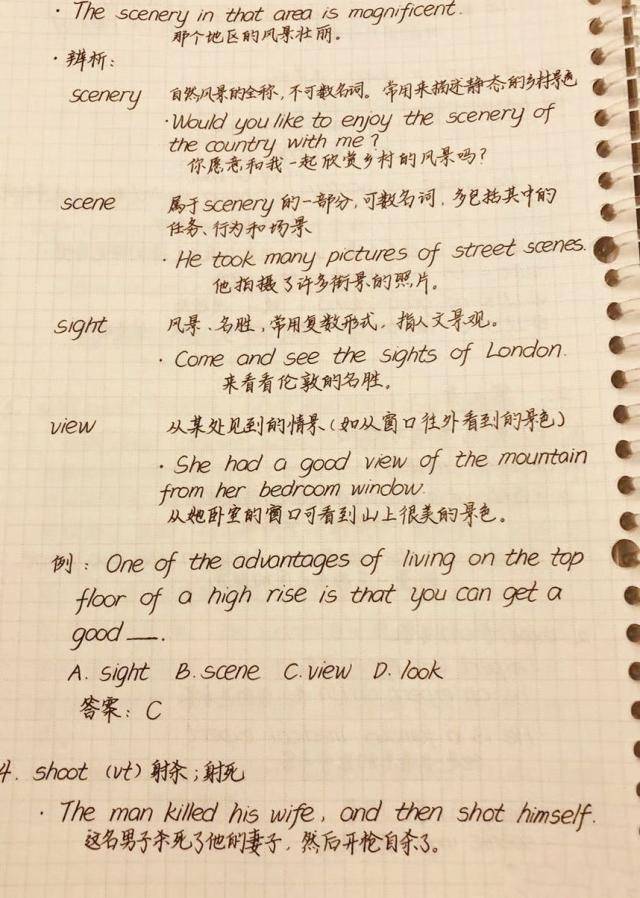 · The scenery in that area is magnificent.
那个地区的风景壮丽。
· 辨析：
scenery 自然风景的全称，不可数名词。常用来描述静态的乡村景色
· Would you like to enjoy the scenery of
the country with me?
你愿意和我一起欣赏乡村的风景吗？
scene 属于scenery的一部分，可数名词，多包括其中的
任务、行为和场景
· He took many pictures of street scenes.
他拍摄了许多街景的照片。
sight 风景、名胜，常用复数形式，指人文景观。
· Come and see the sights of London.
来看看伦敦的名胜。
view 从某处见到的情景（如从窗口往外看到的景色）
· She had a good view of the mountain
from her bedroom window.
从她卧室的窗口可看到山上很美的景色。
例：One of the advantages of living on the top
floor of a high rise is that you can get a
good __.
A. sight B. scene C. view D. look
答案：C
4. shoot (vt) 射杀；射死
· The man killed his wife, and then shot himself.
这名男子杀死了他的妻子，然后开枪自杀了。